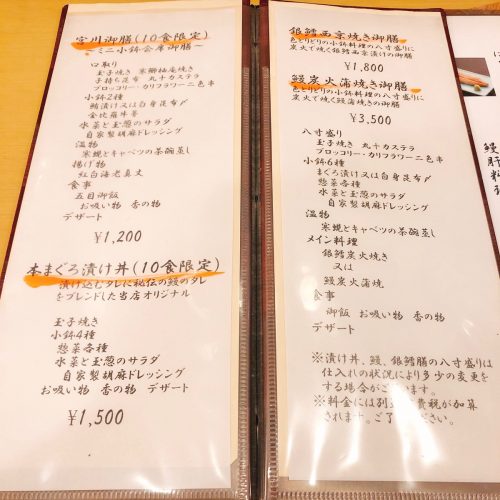 宝川御膳(10食限定)
~ミニ小鉢会席御膳~
口取り
玉子焼き 寒鰤柚庵焼き
子持ち昆布 丸十カステラ
ブロッコリー・カリフラワー二色串
小鉢2種
鮪漬け又は白身昆布〆
金比羅牛蒡
水菜と玉葱のサラダ
自家製胡麻ドレッシング
温物
寒蜆とキャベツの茶碗蒸し
揚げ物
紅白海老真丈
食事
五目御飯
お吸い物 香の物
デザート
¥1,200
本まぐろ漬け丼(10食限定)
漬け込むタレに秘伝の鰻のタレ
をブレンドした当店オリジナル
玉子焼き
小鉢4種
惣菜各種
水菜と玉葱のサラダ
自家製胡麻ドレッシング
お吸い物 香の物 デザート
¥1,500
銀鱈西京焼き御膳
色とりどりの小鉢料理の八寸盛りに
炭火で焼く銀鱈西京漬けの御膳
¥1,800
鰻炭火蒲焼き御膳
色とりどりの小鉢料理の八寸盛りに
炭火で焼く鰻蒲焼の御膳
¥3,500
八寸盛り
玉子焼き 丸十カステラ
ブロッコリー・カリフラワー二色串
小鉢6種
まぐろ漬け又は白身昆布〆
惣菜各種
水菜と玉葱のサラダ
自家製胡麻ドレッシング
温物
寒蜆とキャベツの茶碗蒸し
メイン料理
銀鱈炭火焼き
又は
鰻炭火蒲焼
食事
御飯 お吸い物 香の物
デザート
※漬け丼、鰻、銀鱈膳の八寸盛りは
仕入れの状況により多少の変更を
する場合がございます。
※料金には別途消費税が加算
されます。ご了承ください。
鰻
肝
料